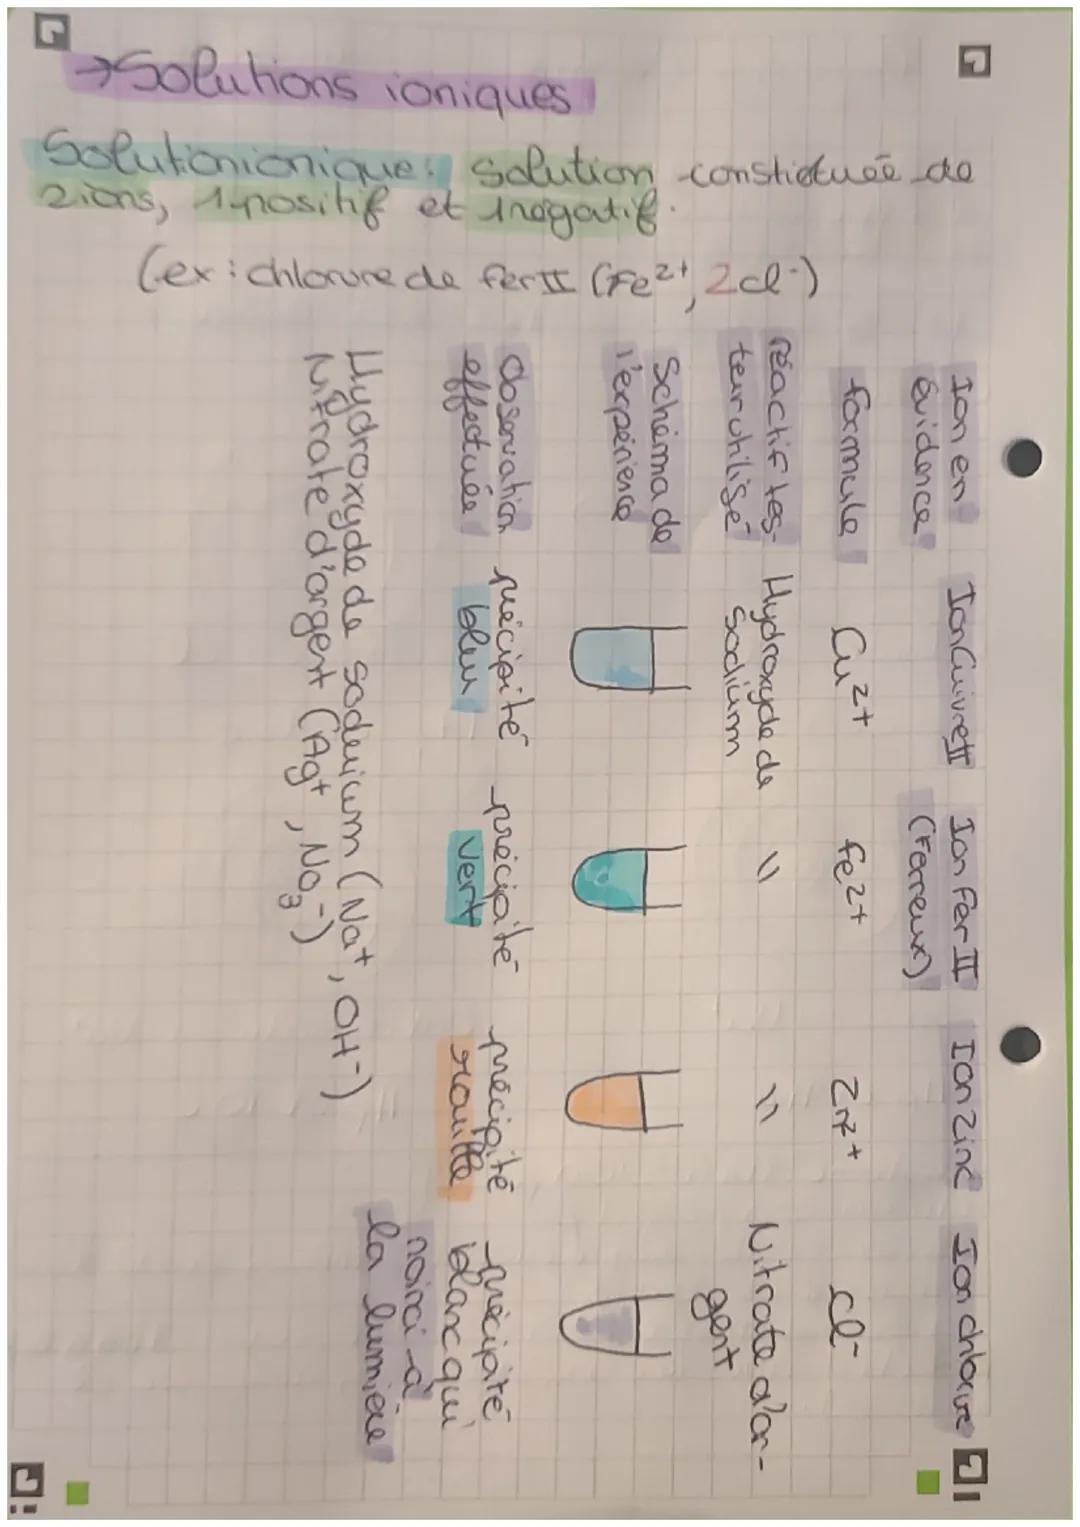 →Solutions ioniques
Solutionionique: Solution constituée de
2 ions, 1 positif et 1 négatif.
(ex: chlorure de fer II (Fe²⁺, 2Cl⁻)
Ion en évidence
Ion Cuivre II
Ion Fer II (Ferreux)
Ion Zinc
Ion chlorure
formule
Cu²⁺
Fe²⁺
Zn²⁺
Cl⁻
réactif tes-
teur utilisé
Hydroxyde de
Sodium
"
"
Nitrate d'ar-
gent
Schéma de
l'expérience
Observation
effectuée
précipité
bleu
précipité
vert
précipité
rouille
précipité
blanc qui
noirci à
la lumière
Hydroxyde de sodium (Na⁺, OH⁻)
Nitrate d'argent (Ag⁺, NO₃⁻)